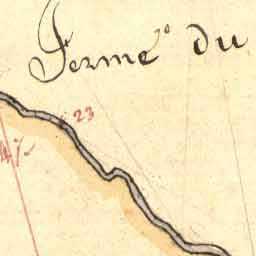 Ferme du
23